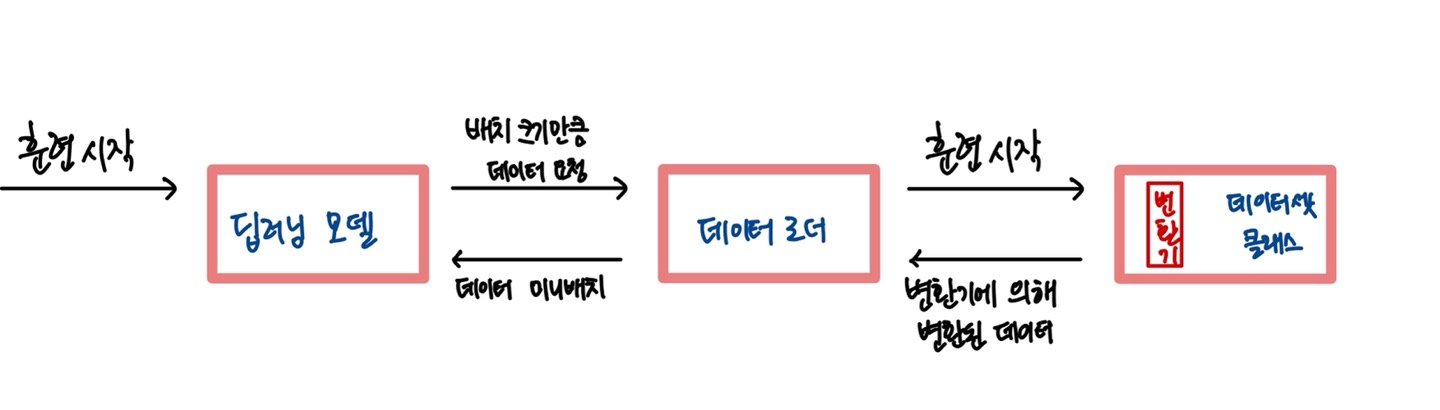 훈련 시작
딥러닝 모델
배치 크기만큼
데이터 요청
데이터 미니배치
데이터 로더
훈련 시작
변환기에 의해
변환된 데이터
변환기
데이터셋
클래스